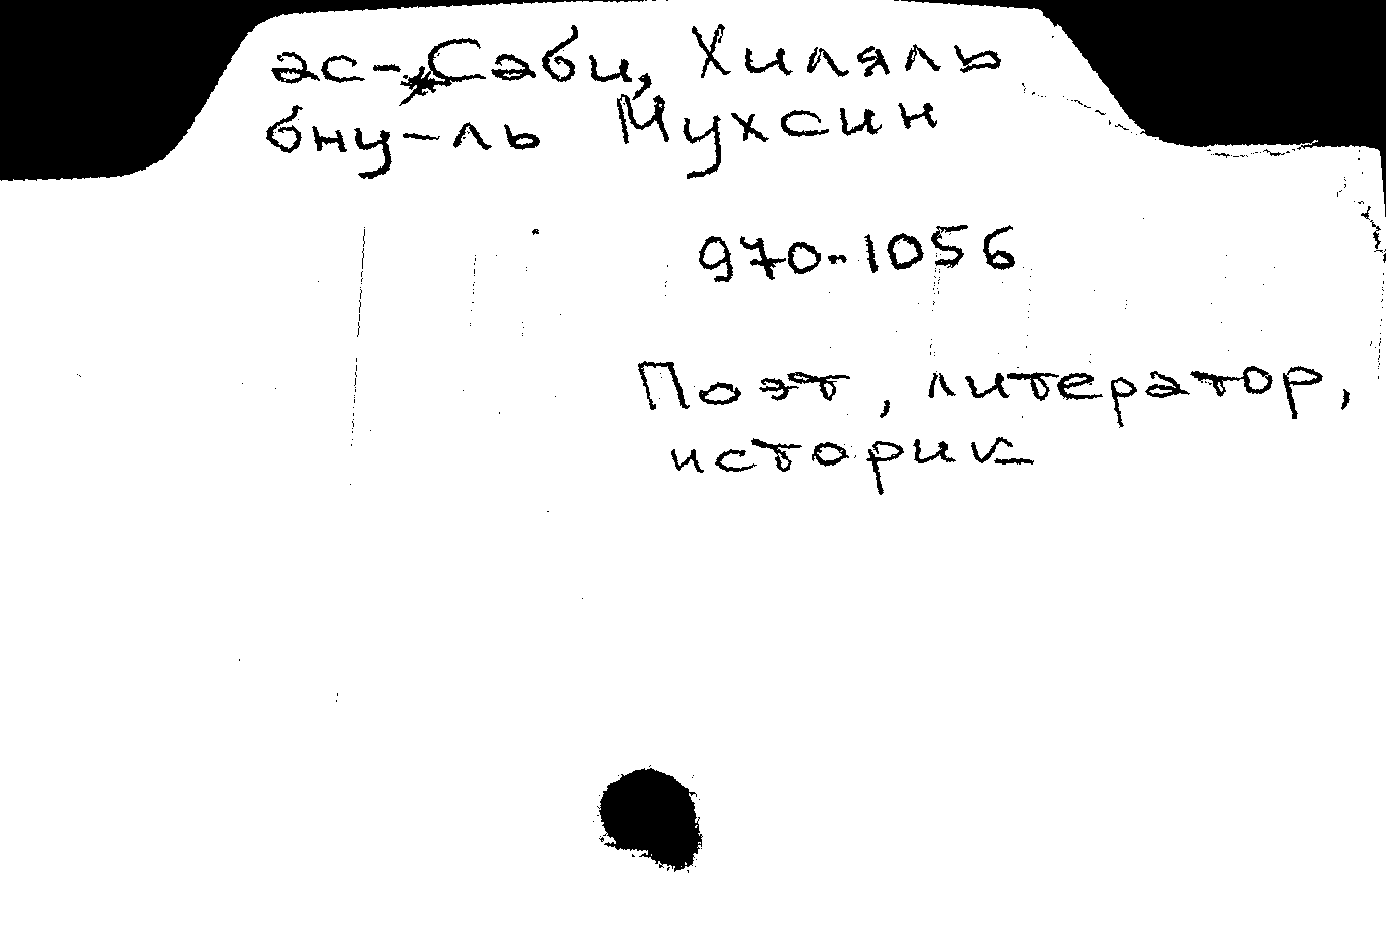 ас-Саби, Хиляль
бну-ль Мухсин
970-1056
Поэт, литератор,
историк